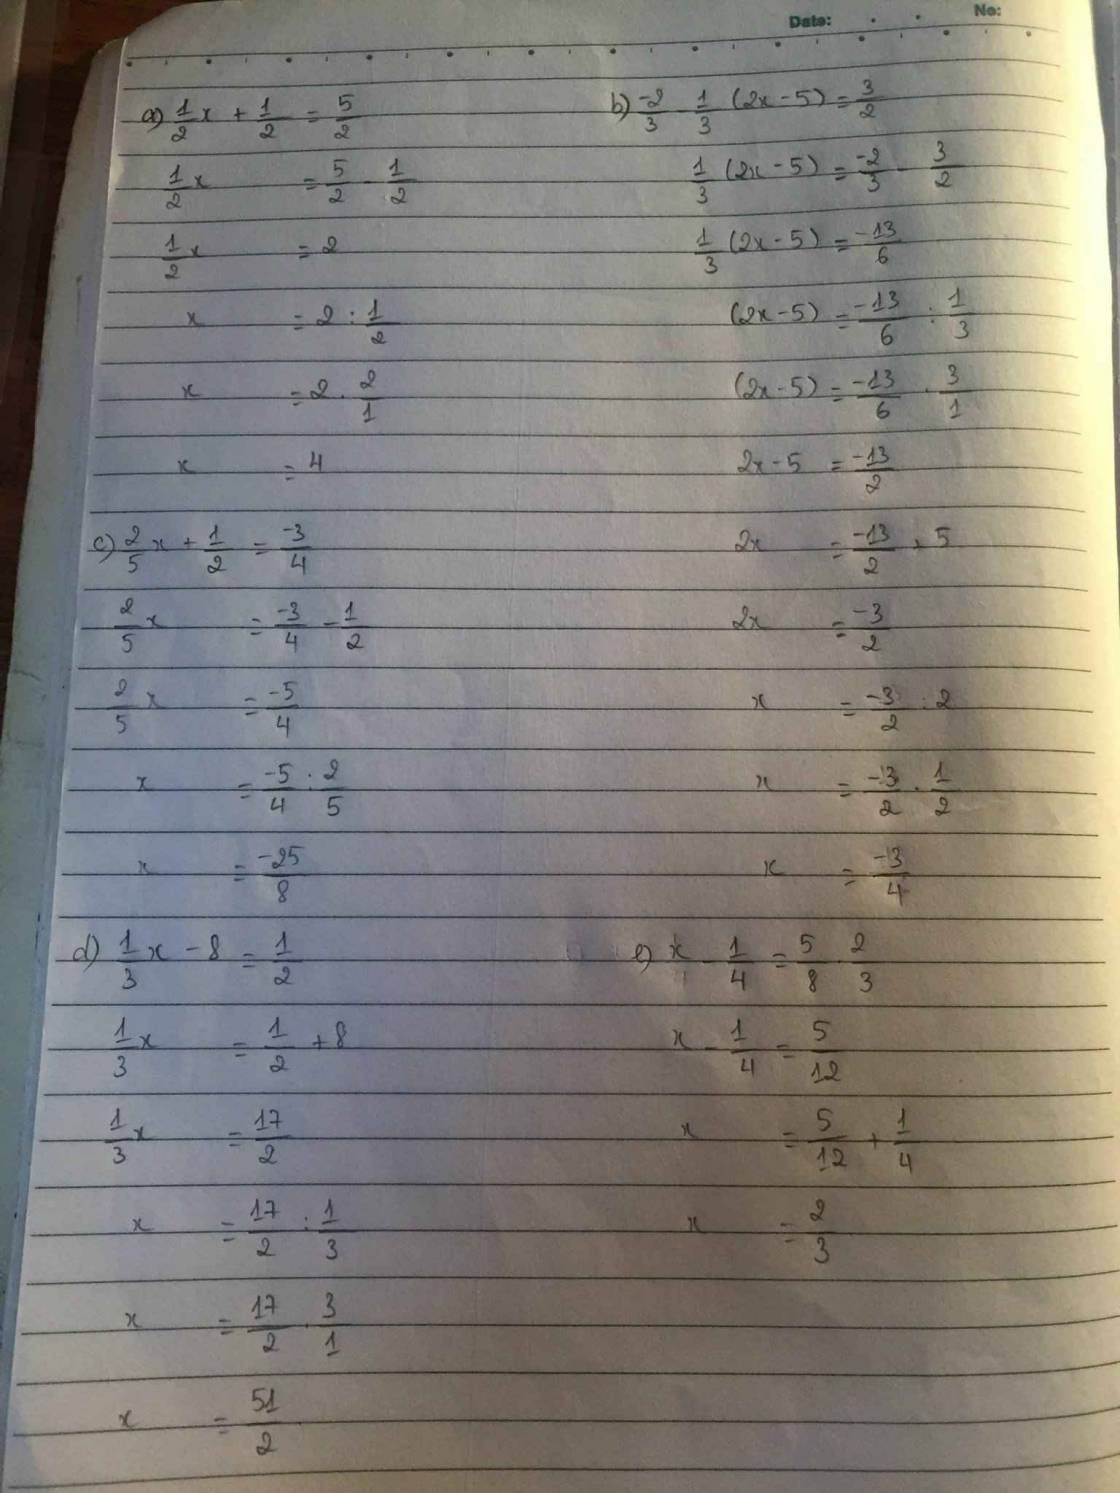 Date: No:
a) 1/2 x + 1/2 = 5/2
1/2 x = 5/2 - 1/2
1/2 x = 2
x = 2 : 1/2
x = 2 . 2/1
x = 4
b) -2/3 - 1/3 (2x - 5) = 3/2
1/3 (2x - 5) = -2/3 - 3/2
1/3 (2x - 5) = -13/6
(2x - 5) = -13/6 : 1/3
(2x - 5) = -13/6 . 3/1
2x - 5 = -13/2
2x = -13/2 + 5
2x = -3/2
x = -3/2 : 2
x = -3/2 . 1/2
x = -3/4
c) 2/5 x + 1/2 = -3/4
2/5 x = -3/4 - 1/2
2/5 x = -5/4
x = -5/4 : 2/5
x = -25/8
d) 1/3 x - 8 = 1/2
1/3 x = 1/2 + 8
1/3 x = 17/2
x = 17/2 : 1/3
x = 17/2 . 3/1
x = 51/2
e) x - 1/4 = 5/8 . 2/3
x - 1/4 = 5/12
x = 5/12 + 1/4
x = 2/3